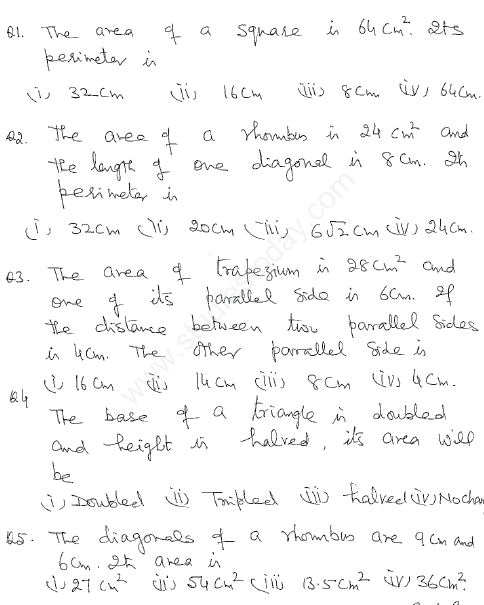 Q1. The area of a square is 64 cm². Its
perimeter is
(i) 32cm (ii) 16cm (iii) 8cm (iv) 64cm.
Q2. The area of a rhombus is 24 cm² and
the length of one diagonal is 8cm. Its
perimeter is
(i) 32cm (ii) 20cm (iii) 6√2cm (iv) 24cm.
Q3. The area of trapezium is 28cm² and
one of its parallel side is 6cm. If
the distance between two parallel sides
is 4cm. The other parallel side is
(i) 16cm (ii) 14cm (iii) 8cm (iv) 4cm.
Q4 The base of a triangle is doubled
and height is halved, its area will
be
(i) Doubled (ii) Tripled (iii) halved (iv) No chan
Q5. The diagonals of a rhombus are 9cm and
6cm. Its area is
(i) 27 cm² (ii) 54cm² (iii) 13.5cm² (iv) 36cm².